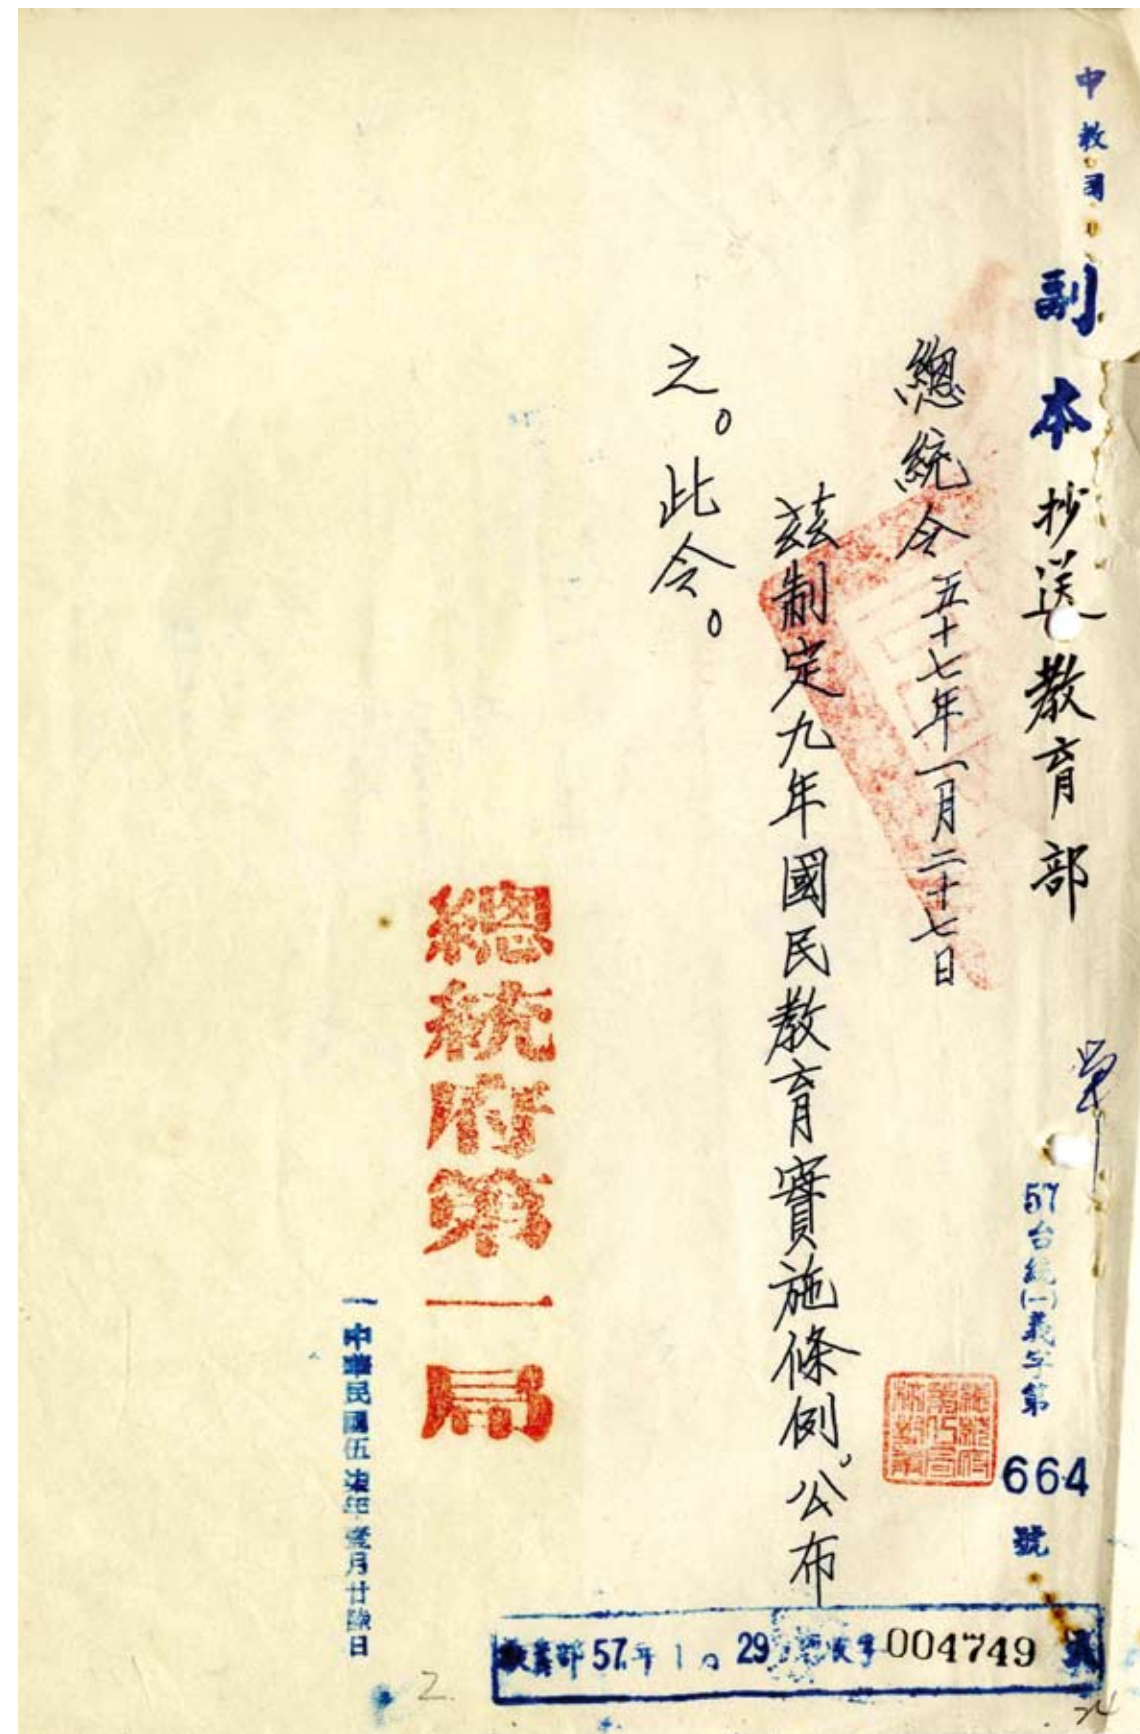 中教司
副本抄送教育部
57台統(一)義字第664號
總統令 五十七年一月二十七日
茲制定九年國民教育實施條例。公布
之。此令。
總統府第一局
中華民國伍柒年壹月廿陸日
教育部57年1月29日總收字004749號
2.
24